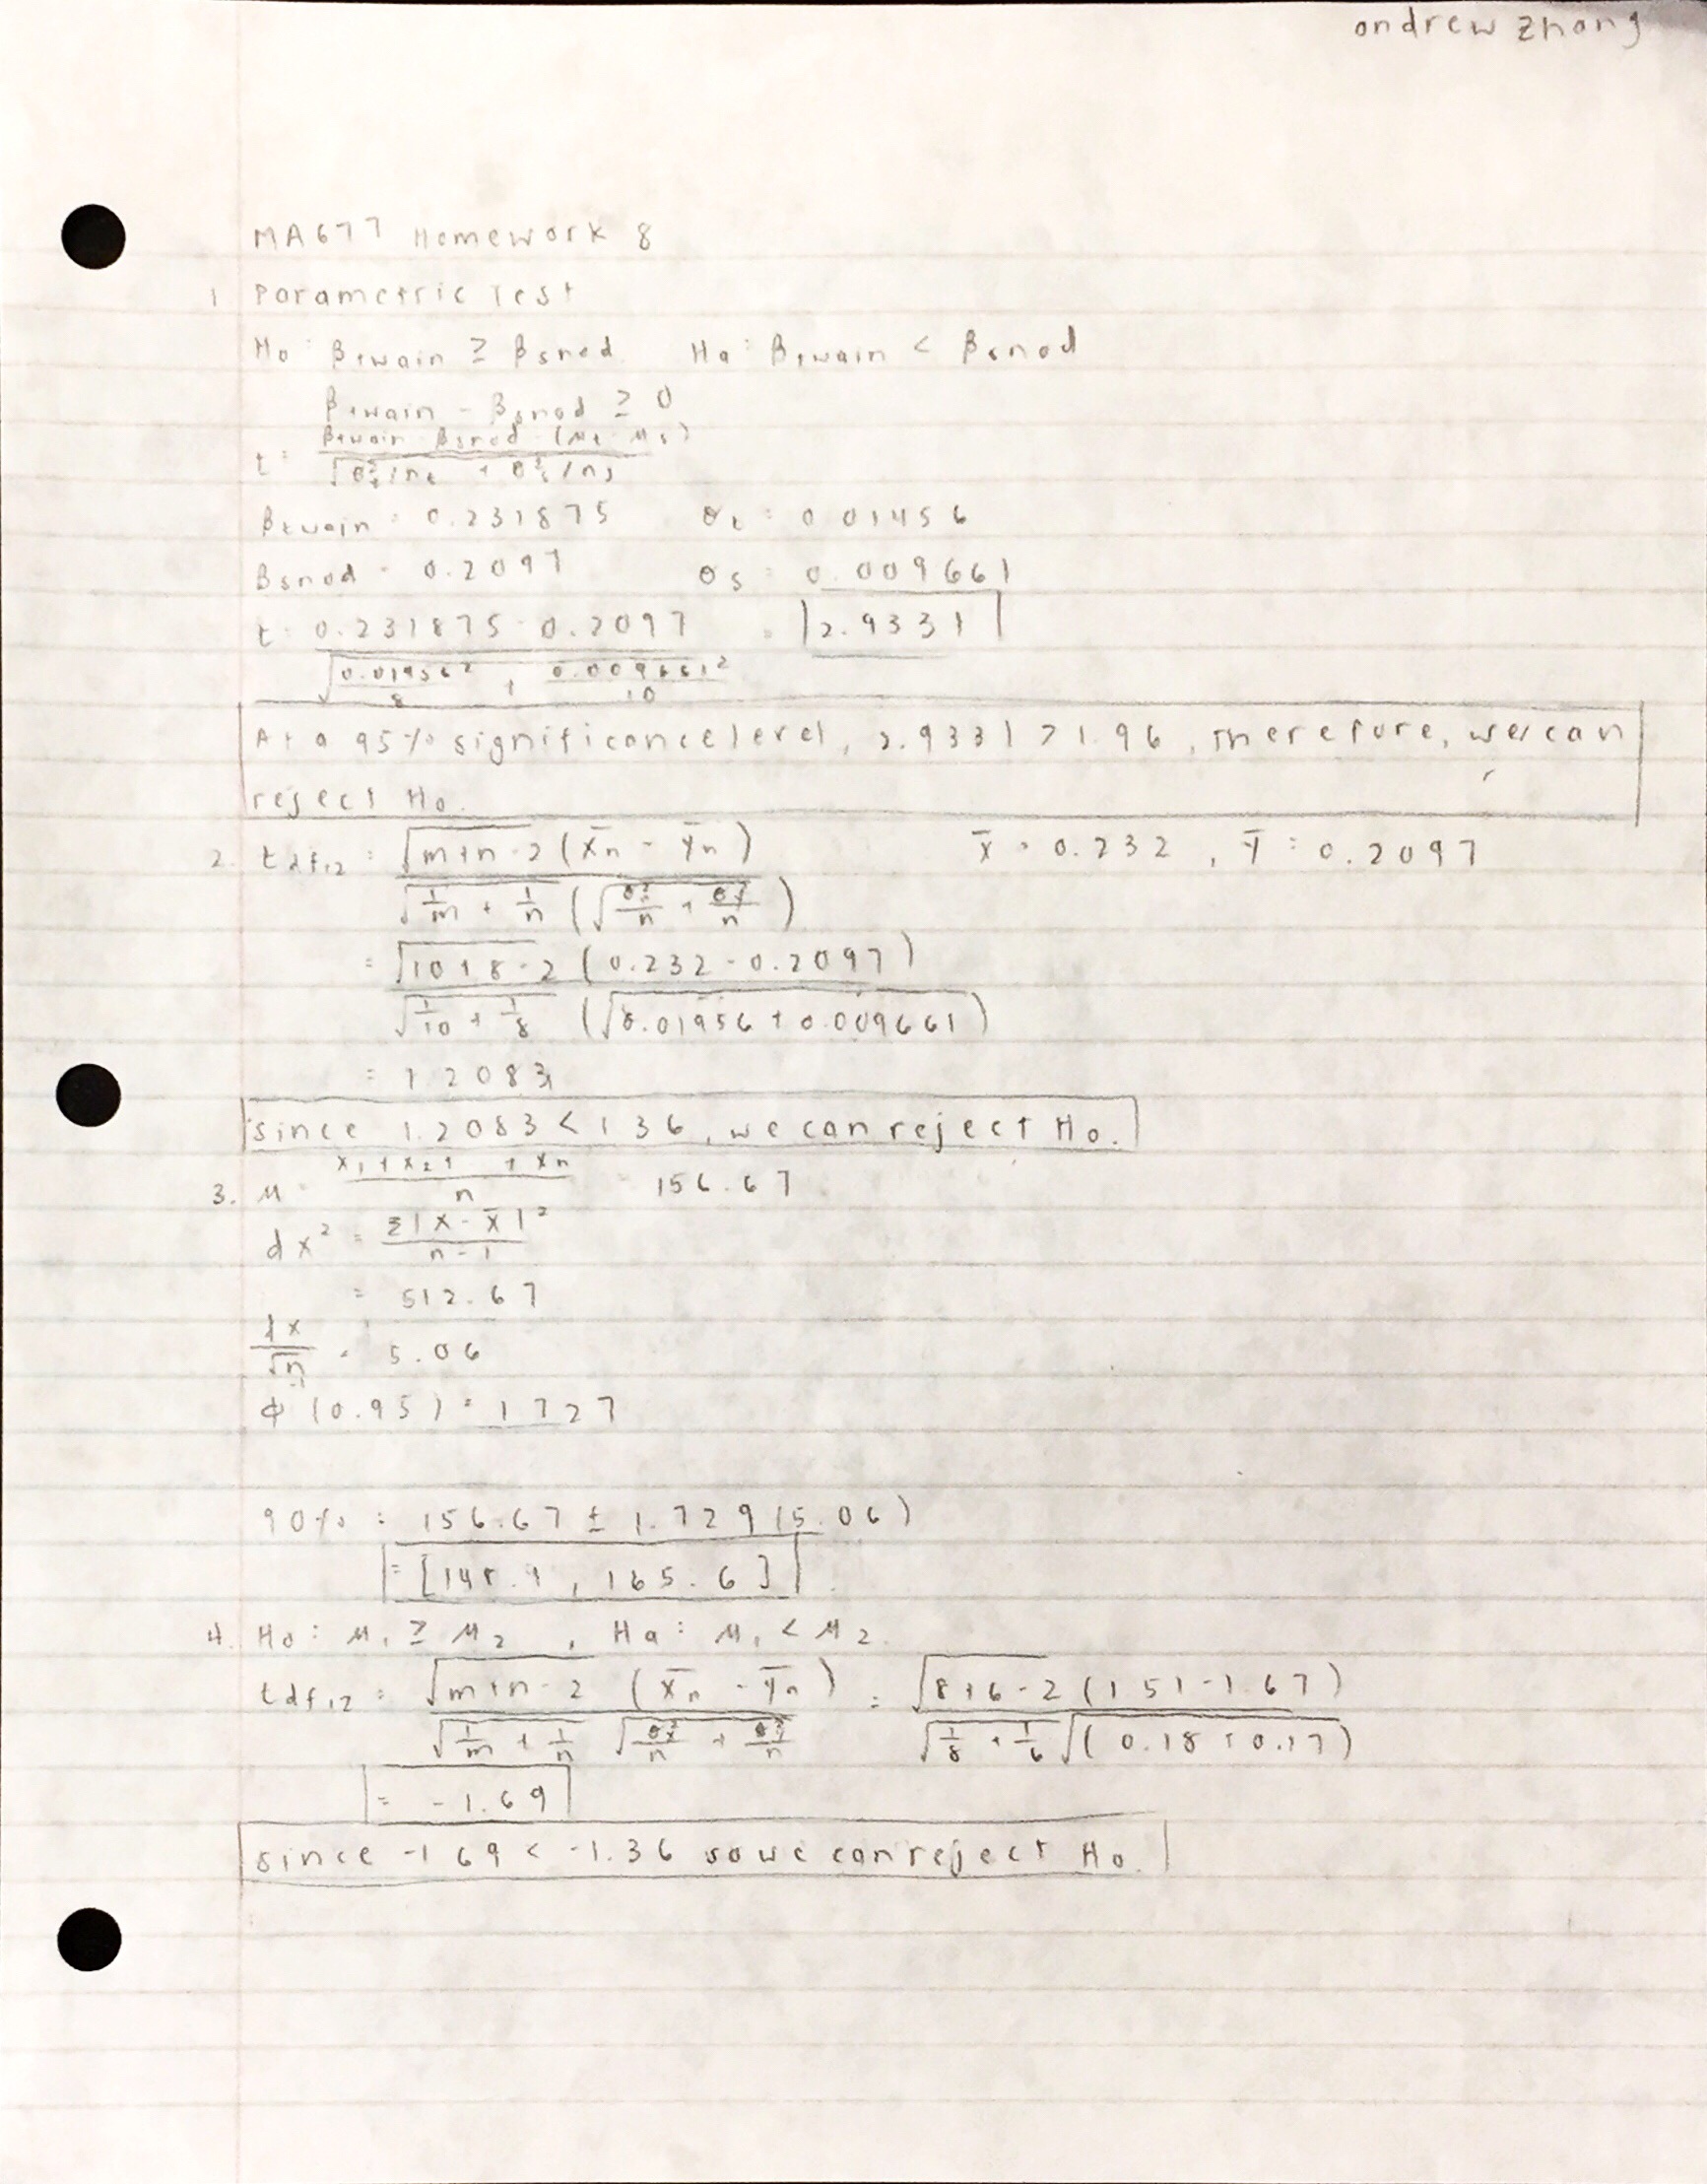 andrew zhang
MA677 Homework 8
1 Parametric Test
H₀: βtwain ≥ βsnod Ha: βtwain < βsnod
βtwain - βsnod ≥ 0
t = βtwain - βsnod - (μt - μs) / √(σt²/nt + σs²/ns)
βtwain = 0.231875 σt = 0.01456
βsnod = 0.2097 σs = 0.009661
t = 0.231875 - 0.2097 / √(0.01456²/8 + 0.009661²/10) = 2.9331
At a 95% significance level, 2.9331 > 1.96, Therefore, we can
reject H₀.
2. tdf,12 = √m+n-2 (x̄n - ȳn) / √(1/m + 1/n) (√(σx²/n + σy²/n)) x̄ = 0.232, ȳ = 0.2097
= √10+8-2 (0.232 - 0.2097) / √(1/10 + 1/8) (√0.01956 + 0.009661)
= 1.2083
since 1.2083 < 1.36, we can reject H₀.
3. μ = x₁ + x₂ + + xn / n = 156.67
dx² = Σ|x - x̄|² / n-1
= 512.67
dx/√n = 5.06
φ⁻¹(0.95) = 1.727
90% = 156.67 ± 1.729(5.06)
= [148.9, 165.6]
4. H₀: μ₁ ≥ μ₂, Ha: μ₁ < μ₂
tdf,12 = √m+n-2 (x̄n - ȳn) / √(1/m + 1/n) √(σx²/n + σy²/n) = √8+6-2 (1.51 - 1.67) / √(1/8 + 1/6) √(0.18 + 0.17)
= -1.69
since -1.69 < -1.36 so we can reject H₀.